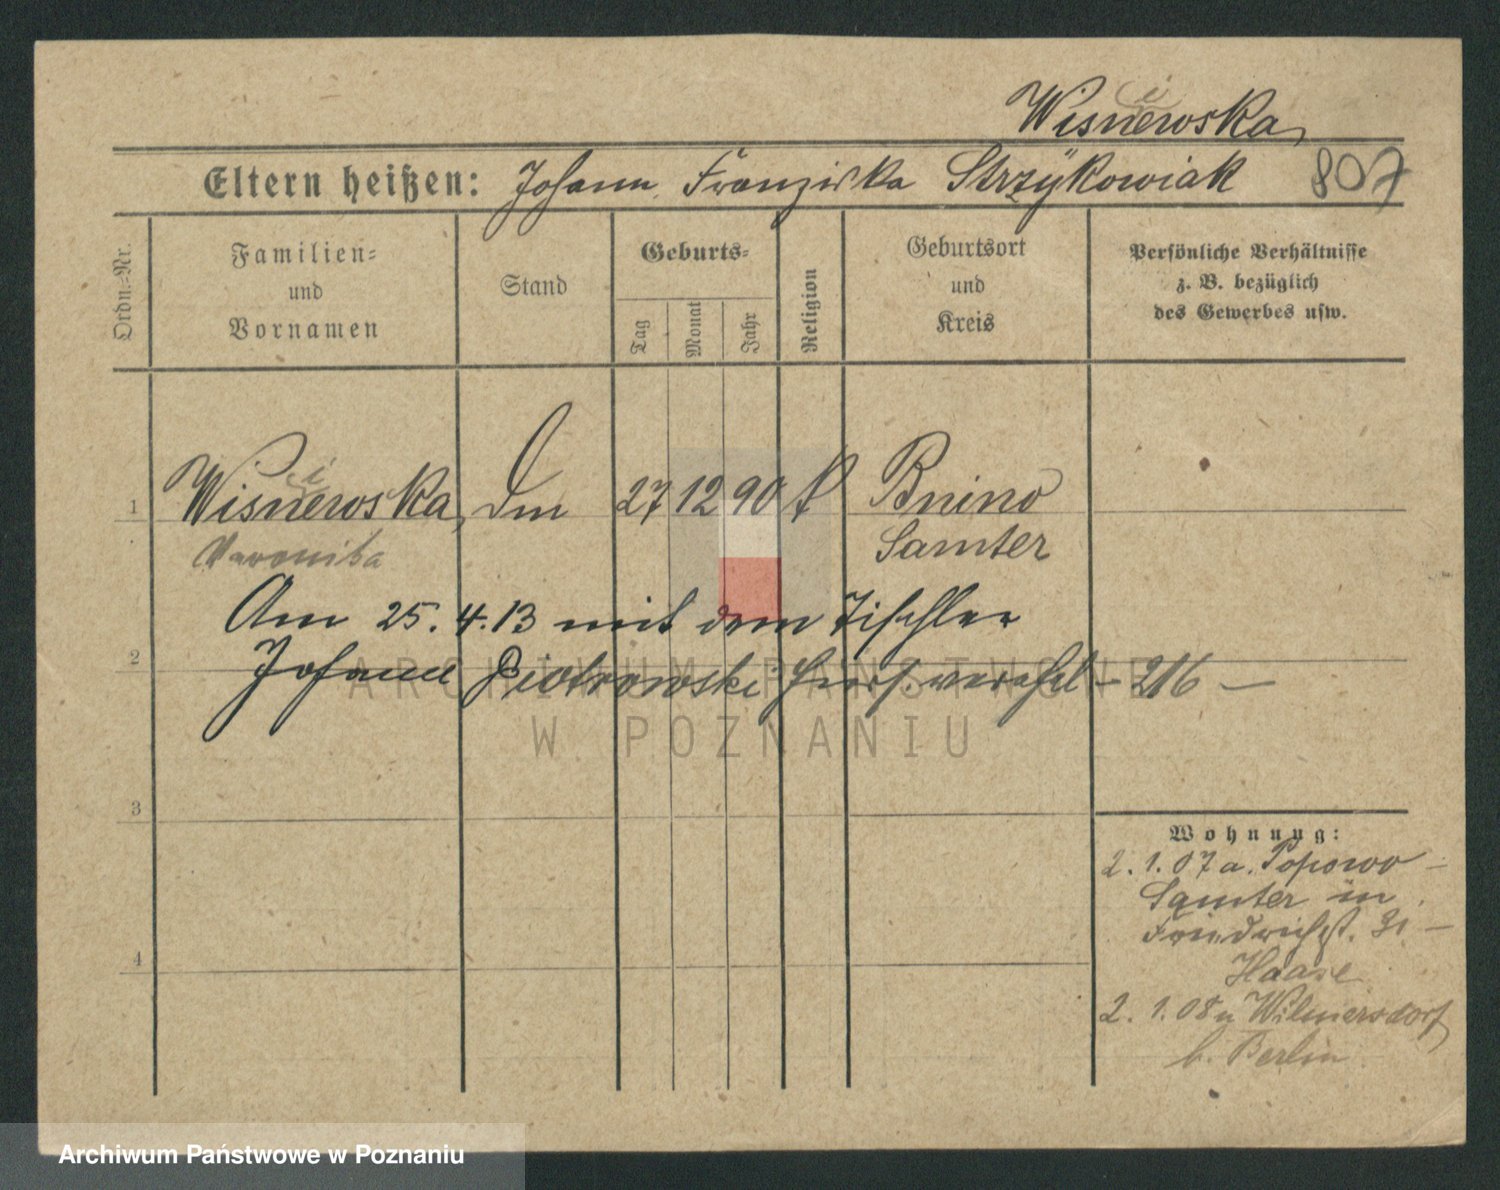 Wisniewska,
Eltern heißen: Johann, Franziska Strzÿkowiak 807
Ordn.-Nr.
Familien-
und
Vornamen
Stand
Geburts-
Tag
Monat
Jahr
Religion
Geburtsort
und
Kreis
Persönliche Verhältnisse
z. B. bezüglich
des Gewerbes usw.
1 Wisniewska, 27 12 90 Bnino
Veronika Samter
Am 25.4.13 mit dem Tischler
2 Johann Piotrowski hiers. verehel. - 216 -
3
4
Wohnung:
2. 1. 07 a. Popowo -
Samter in
Friedrichst. 31 -
Haase
2. 1. 08 n Wilmersdorf
b. Berlin
ARCHIWUM PAŃSTWOWE
W POZNANIU
Archiwum Państwowe w Poznaniu